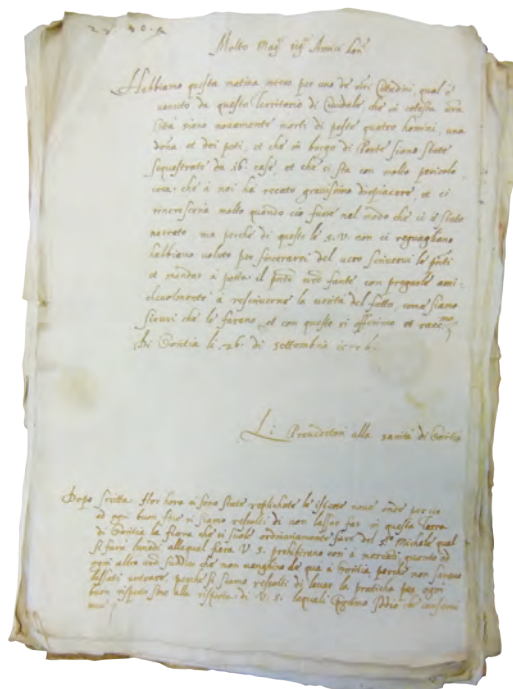 Molto Mag.ci sig.ri Amici hon.
Habbiamo questa matina inteso per uno de dei Cittadini, qual è
venuto da questo Territorio di Cividale che in cotesta vra
Città siano novamente morti di peste quatro homini, una
dona et doi puti, et che in borgo di Ponte siano state
sequestrate da 16. case, et che si sta con molto pericolo,
cosa che à noi ha recato gravissimo dispiacere, et ci
rincresceria molto quando cio fusse nel modo che ci è stato
narrato ma perche di questo le S. V. non ci raguagliano
habbiamo voluto per sincerarsi del vero scrivervi le pnti
et mandar à posta il pnte nro fante con pregarle ami-
chevolmente à rescriverne la verità del fatto, come siamo
sicuri che le farano, et con questo vi offerimo et racc.mo
Di Goritia li 26. di settembre
Li Proveditori alla sanità di Goritia
Dopo scritta. Hor hora ci sono state replichate le istesse nove onde per cio
ad ogni buon fine si siamo resolti di non lassar far in questa Terra
di Goritia la fiera che si suole ordinariamente farse del S. Michele qual
si farà lunedi allaqual fiera V. S. prohibirano così à mercadi, quanto ad
ogni altro suo suddito che non venghino de qua à Goritia perche non sarano
lassati entrare, perche si siamo resolti di levar la pratiche per ogni
buon rispeto fino alla risposta di V. S. lequali